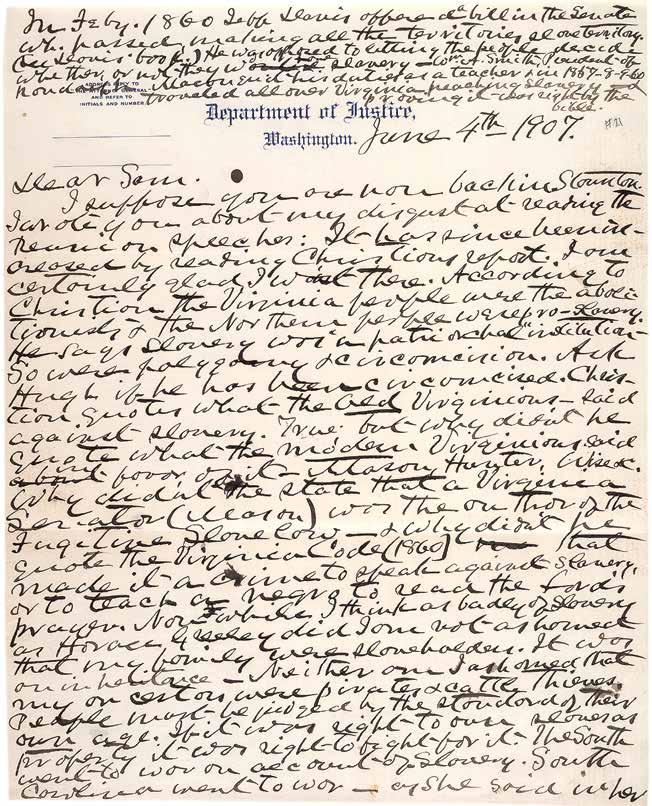 In Feby. 1860 Jeff Davis offered a bill in the Senate
wh. passed, making all the territories slave territory.
(See Davis' book.) He was opposed to letting the people decide
whether or not they slavery – Wm. A. Smith, President of
Randolph Macon his duties as a teacher & in 1857-8-9-60
traveled all over Virginia preaching slavery &
proving it was right by the
bible.
ADDRESS REPLY TO
"THE ATTORNEY GENERAL"
AND REFER TO
INITIALS AND NUMBER.
Department of Justice,
Washington.
June 4th 1907.
#21
Dear Sam.
I suppose you are now back in Staunton.
I wrote you about my disgust at reading the
Reunion speeches: It has since been in-
creased by reading Christians report. I am
certainly glad I wasn't there. According to
Christian the Virginia people were the aboli-
tionists & the Northern people were pro-slavery.
He says slavery was "a patriarchal" institution –
So were polygamy & circumcision. Ask
Hugh if he has been circumcised. Chris-
tian quotes what the old Virginians – said
against slavery. True; but why didn't he
quote what the modern Virginians said
in favor of it – Mason, Hunter, Wise &c.
Why didn't he state that a Virginia
Senator (Mason) was the author of the
Fugitive Slave law – & why didn't he
quote the Virginia Code (1860) that
made it a crime to speak against slavery,
or to teach a negro to read the Lord's
prayer. Now while I think as badly of slavery
as Horace Greeley did I am not ashamed
that my family were slaveholders. It was
our inheritance – Neither am I ashamed that
my ancestors were pirates & cattle thieves.
People must be judged by the standard of their
own age. If it was right to own slaves as
property it was right to fight for it. The South
went to war on account of slavery. South
Carolina went to war – as she said in her